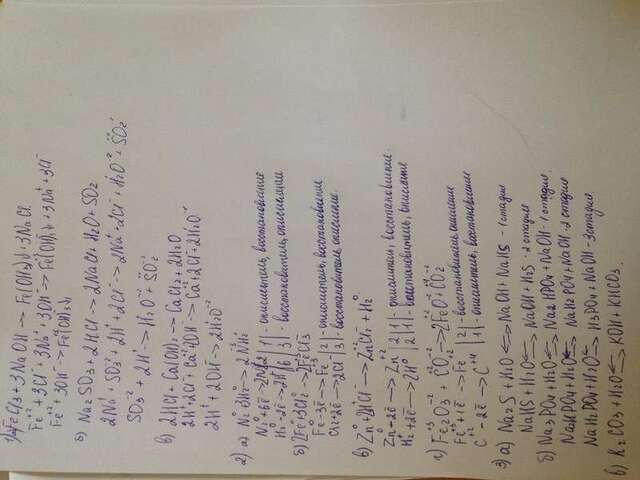 1) а) FeCl3 + 3NaOH → Fe(OH)3↓ + 3NaCl
Fe+3 + 3Cl- + 3Na+ + 3OH- → Fe(OH)3↓ + 3Na+ + 3Cl-
Fe+3 + 3OH- → Fe+3(OH)3↓
б) Na2SO3 + 2HCl → 2NaCl + H2O + SO2
2Na+ + SO3-2 + 2H+ + 2Cl- → 2Na+ + 2Cl- + H2+O-2 + SO2
SO3-2 + 2H+ → H2+O-2 + SO2
в) 2HCl + Ca(OH)2 → CaCl2 + 2H2O
2H+ + 2Cl- + Ca+2 + 2OH- → Ca+2 + 2Cl- + 2H2O-2
2H+ + 2OH- → 2H2O-2
2) а) N20 + 3H20 → 2N-3H3+
N20 + 6ē → 2N-3 |2| 1 | - окислитель, восстановление
H20 - 2ē → 2H+ |6| 3 | - восстановитель, окисление
б) 2Fe0 + 3Cl20 → 2Fe+3Cl3-
Fe0 - 3ē → Fe+3 | 2 | - окислитель, восстановление
Cl2 + 2ē → 2Cl- | 3 | - восстановитель, окисление.
в) Zn0 + 2H+Cl- → Zn+2Cl2- + H20
Zn0 + 2ē → Zn+2 | 2 | 1 | - окислитель, восстановление
H2+ + 2ē → 2H0 | 2 | 1 | - восстановитель, окисление
г) Fe2+3O3-2 + C+2O-2 → 2Fe+2O-2 + C+4O2-2
Fe+3 + 1ē → Fe+2 | 2 | - восстановитель, окисление
C+2 - 2ē → C+4 | 1 | - окислитель, восстановление
3) а) Na2S + H2O ⇄ NaOH + NaHS - 1 стадия
NaHS + H2O ⇄ NaOH + H2S - 2 стадия
б) Na3PO4 + H2O ⇄ Na2HPO4 + NaOH - 1 стадия.
Na2HPO4 + H2O ⇄ NaH2PO4 + NaOH - 2 стадия
NaH2PO4 + H2O ⇄ H3PO4 + NaOH - 3 стадия.
в) K2CO3 + H2O ⇄ KOH + KHCO3.